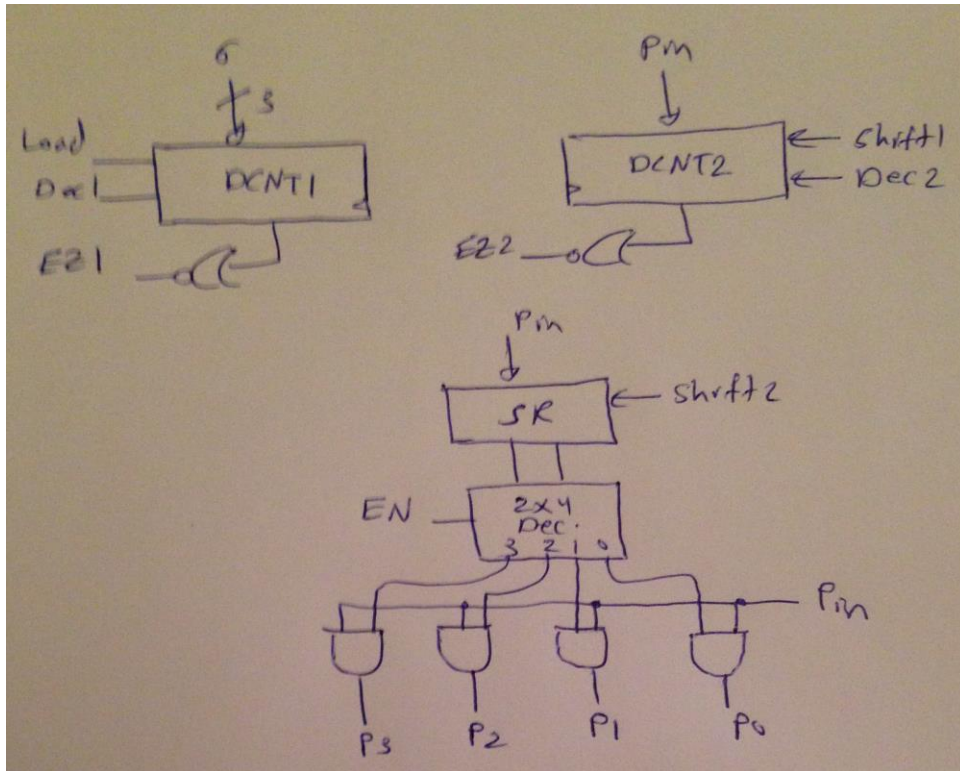 6
3
Load
Dec1
DCNT1
EZ1
Pin
DCNT2
Shift1
Dec2
EZ2
Pin
SR
Shift2
EN
2x4
Dec.
3 2 1 0
Pin
P3 P2 P1 P0